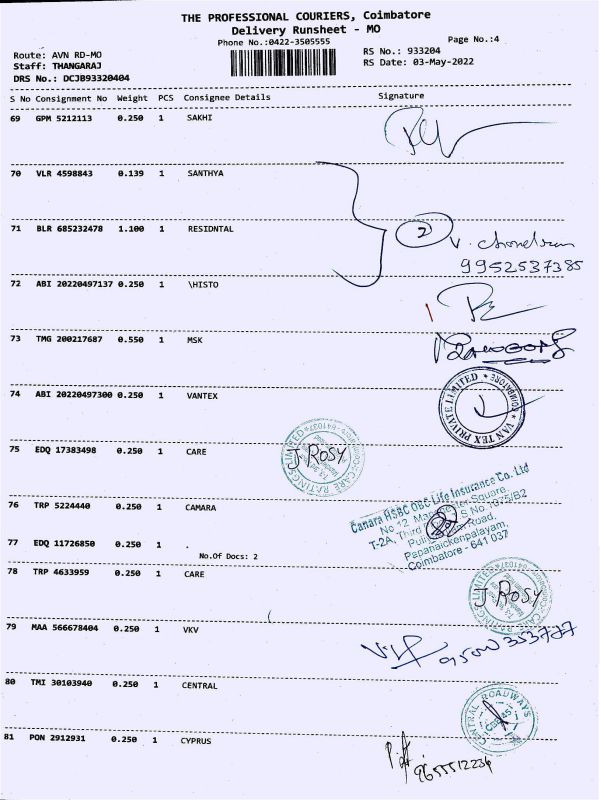 THE PROFESSIONAL COURIERS, Coimbatore
Delivery Runsheet - MO
Phone No.:0422-3505555
Page No.:4
Route: AVN RD-MO
RS No.: 933204
Staff: THANGARAJ
RS Date: 03-May-2022
DRS No.: DCJB93320404
S No Consignment No Weight PCS Consignee Details Signature
69 GPM 5212113 0.250 1 SAKHI
70 VLR 4598843 0.139 1 SANTHYA
71 BLR 685232478 1.100 1 RESIDNTAL
2
V. Chandran
9952537385
72 ABI 20220497137 0.250 1 \HISTO
73 TMG 200217687 0.550 1 MSK
74 ABI 20220497300 0.250 1 VANTEX
VAN TEX PRIVATE LIMITED * COIMBATORE *
75 EDQ 17383498 0.250 1 CARE
J ROSY
CARE RATINGS LIMITED
76 TRP 5224440 0.250 1 CAMARA
Canara HSBC OBC Life Insurance Co. Ltd
Coimbatore - 641 037
Papanaickenpalayam,
77 EDQ 11726850 0.250 1 .
No.Of Docs: 2
78 TRP 4633959 0.250 1 CARE
J ROSY
CARE RATINGS LIMITED
79 MAA 566678404 0.250 1 VKV
80 TMI 30103940 0.250 1 CENTRAL
CENTRAL ROADWAYS
81 PON 2912931 0.250 1 CYPRUS
9655512236